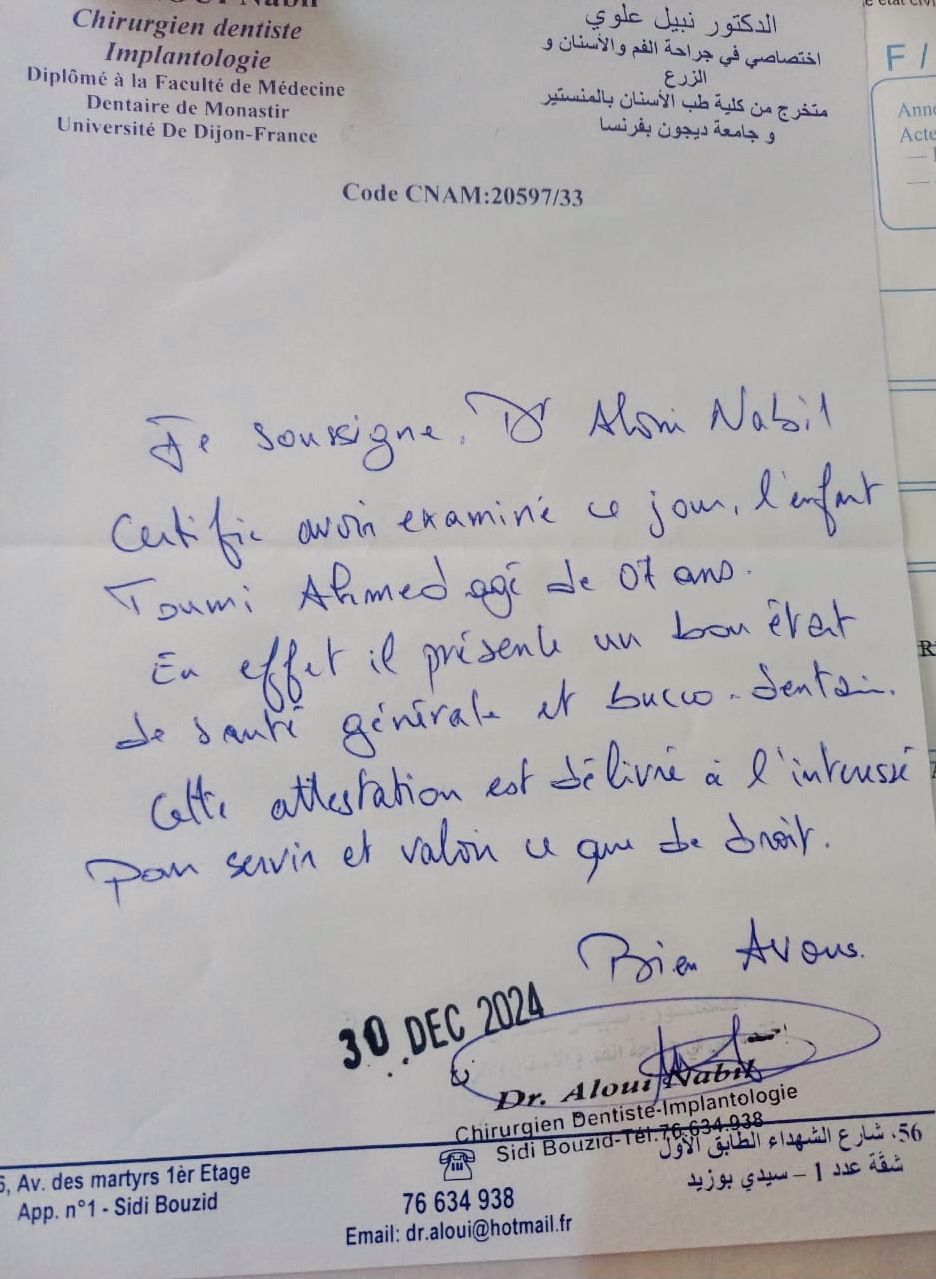 Nabil
Chirurgien dentiste
Implantologie
Diplômé à la Faculté de Médecine
Dentaire de Monastir
Université De Dijon-France
الدكتور نبيل علوي
اختصاصي في جراحة الفم والأسنان و
الزرع
متخرج من كلية طب الأسنان بالمنستير
و جامعة ديجون بفرنسا
Code CNAM:20597/33
Je soussigne, Dr Aloui Nabil
Certifie avoir examiné ce jour, l'enfant
Toumi Ahmed agé de 07 ans.
En effet il présente un bon êtat
de santé générale et bucco-dentaire.
Cette attestation est délivré à l'interessé
pour servir et valoir ce que de droit.
Bien Avous.
30 DEC 2024
Dr. Aloui Nabil
Chirurgien Dentiste-Implantologie
Sidi Bouzid-Tél.76.634.938
6, Av. des martyrs 1èr Etage
App. n°1 - Sidi Bouzid
76 634 938
Email: dr.aloui@hotmail.fr
56، شارع الشهداء الطابق الأول
شقة عدد 1 – سيدي بوزيد
F /
Acte